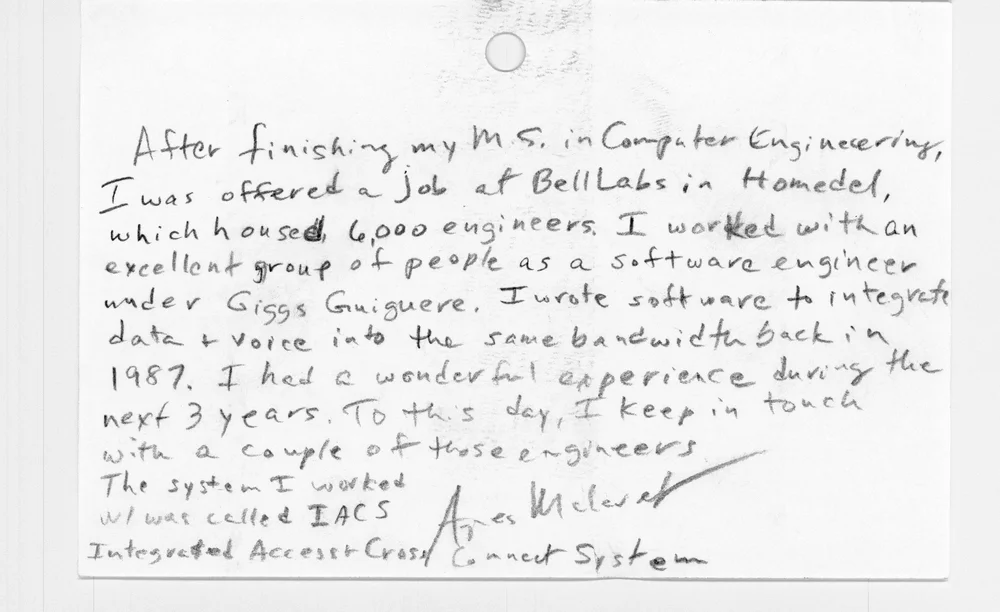 After finishing my M.S. in Computer Engineering,
I was offered a job at Bell Labs in Homedel,
which housed 6,000 engineers. I worked with an
excellent group of people as a software engineer
under Giggs Guiguere. I wrote software to integrate
data + voice into the same bandwidth back in
1987. I had a wonderful experience during the
next 3 years. To this day, I keep in touch
with a couple of those engineers
The system I worked
w/ was called IACS
Integrated Access + Cross/Connect System